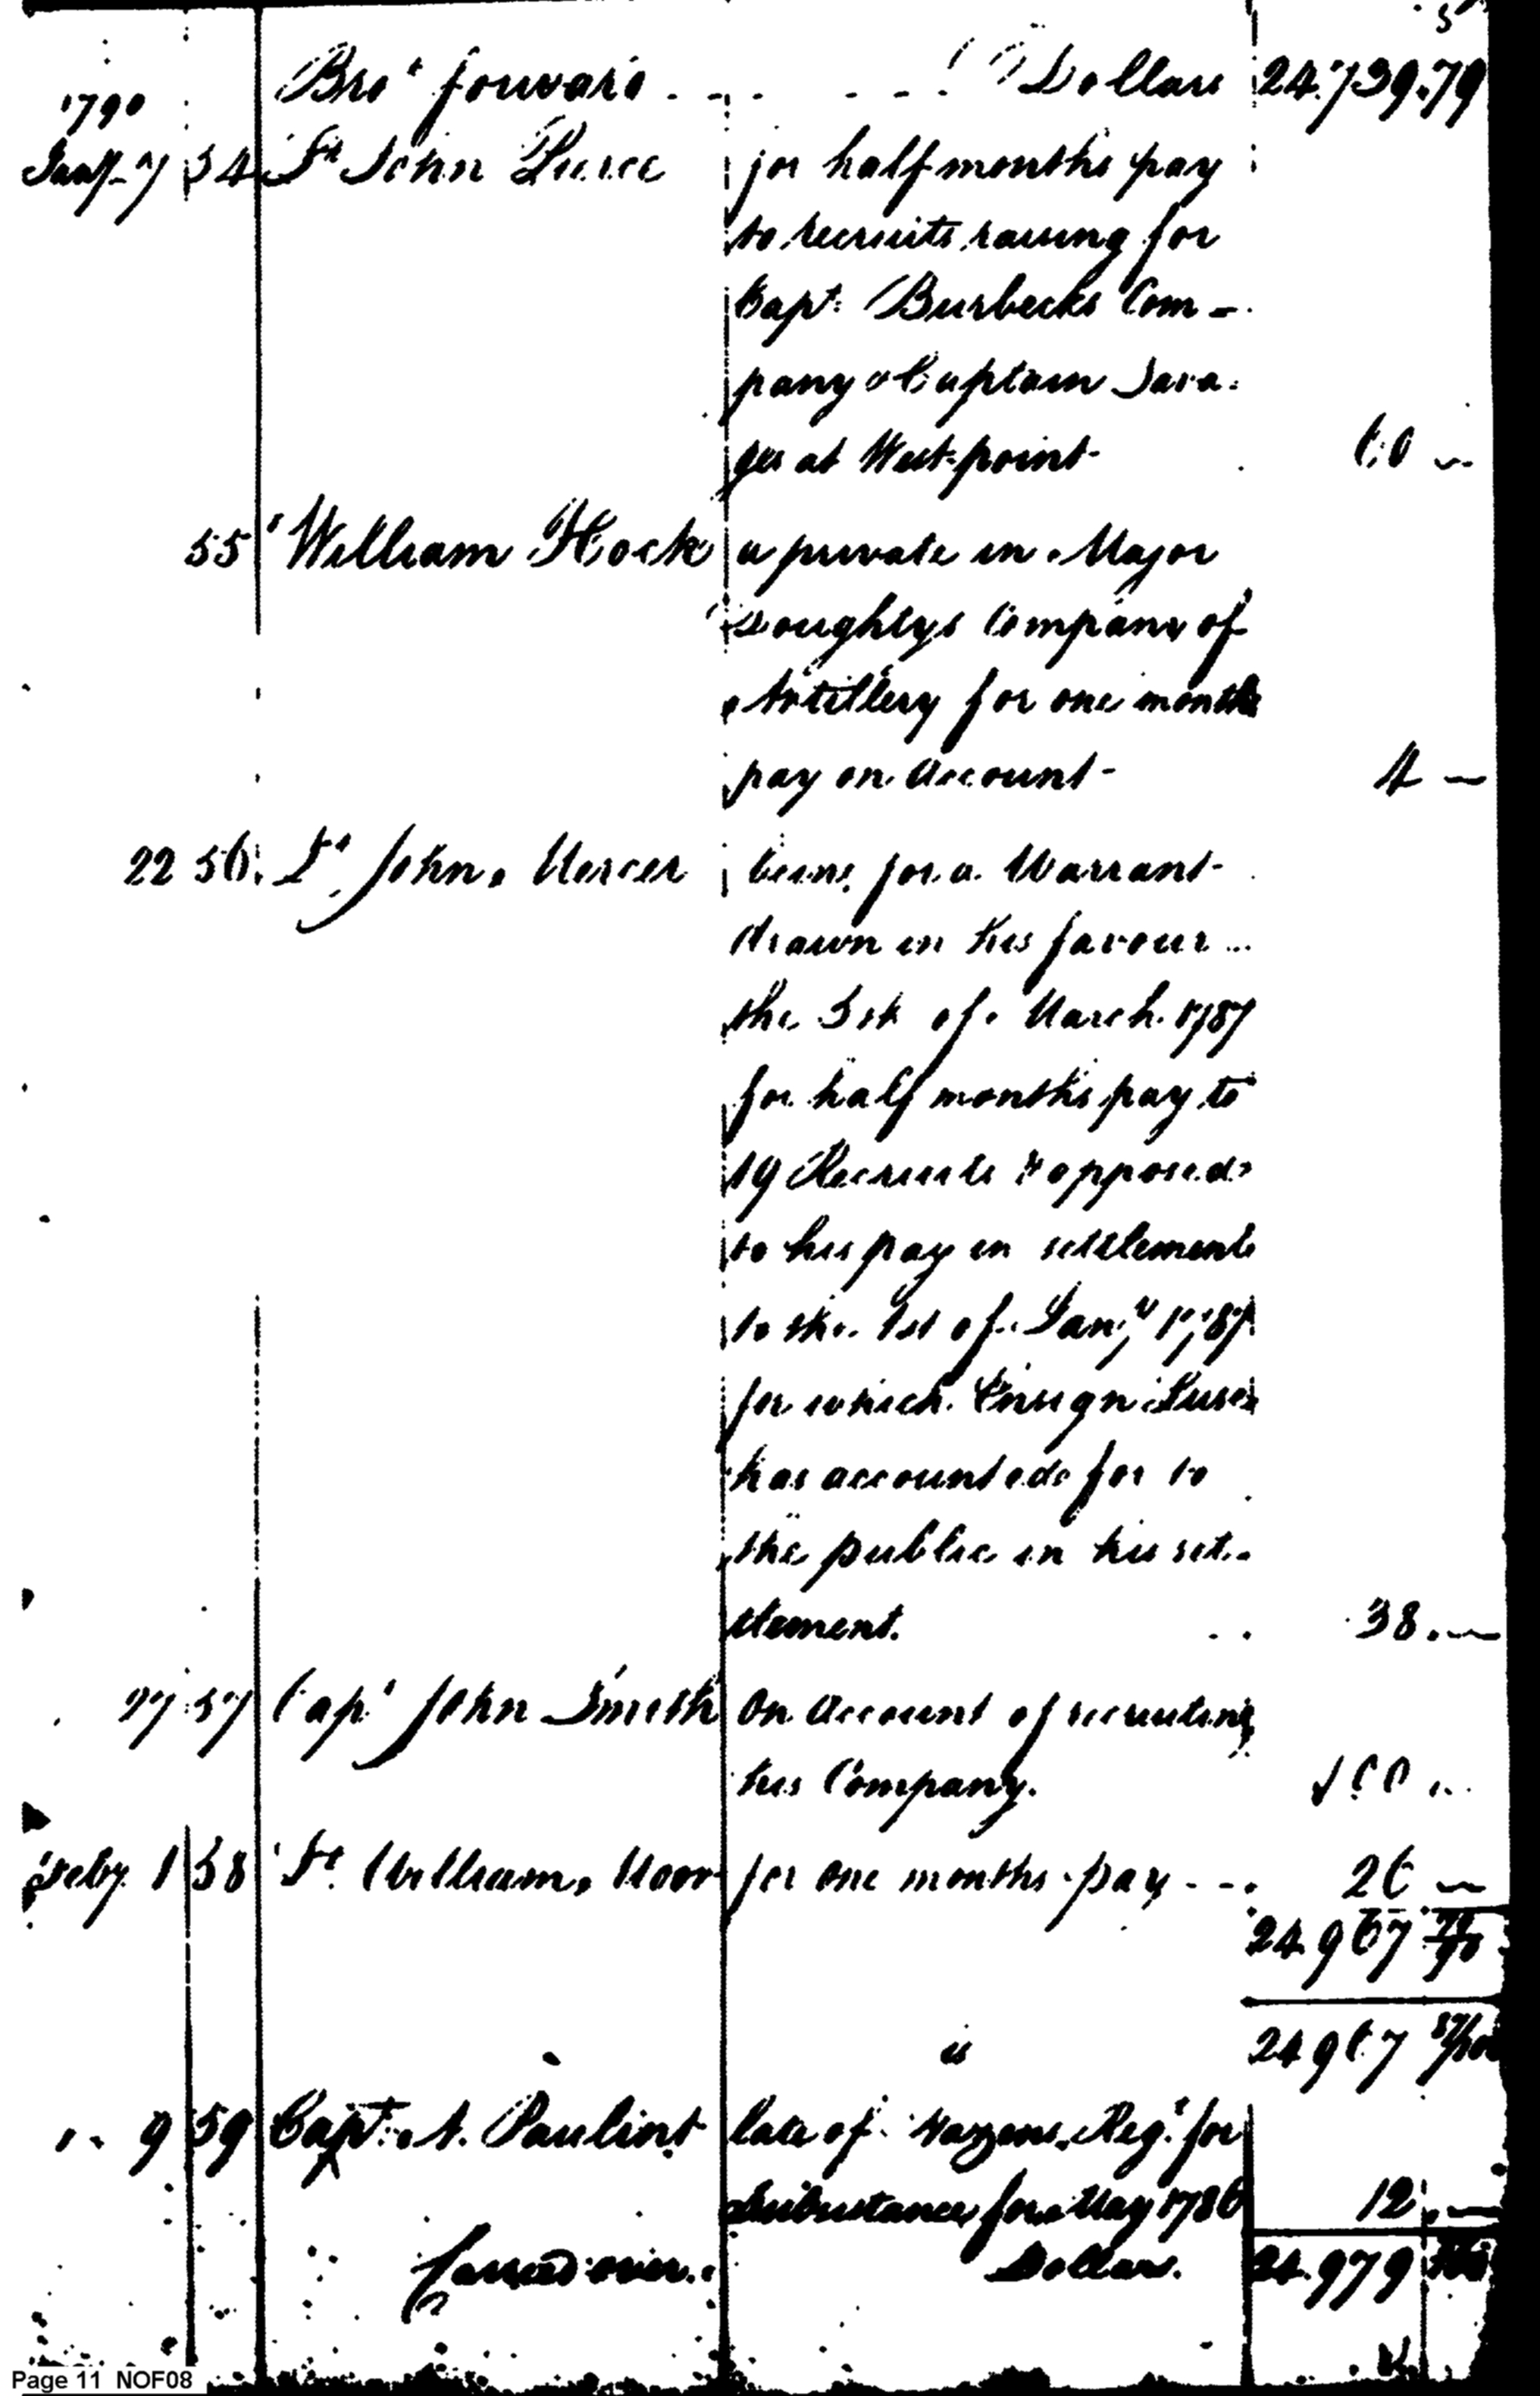 5
Bro.t forward - - - - - - Dollars 24.739.79
1790
Jany 7 54 Lt John Pierce for half months pay
to recruits raising for
Capt. Burbecks Com-
pany & Captain Sava-
ges at West point 60 —
55 William Hock a private in Major
Doughtys Company of
Artillery for one months
pay on Account - 4 —
22 56. Lt. John Mercer being for a Warrant
drawn in his favour
the 31st of March 1787
for half months pay to
19 Recruits & opposed
to his pay in settlement
to the 1st of Jany 1787
for which Ensign
has accounted for to
the public in his set-
tlement. 38. —
27 57 Capt John Smith On Account of recruiting
his Company. 100
Feby 1 58 Lt. William Moor for one months pay - - - 26 —
24967
24967
" 9 59 Capt. A. Paulint late of Hazzens Regt for
Subsistance for May 1786 12. —
Carried over. Dollars. 24.979
Page 11 NOF08